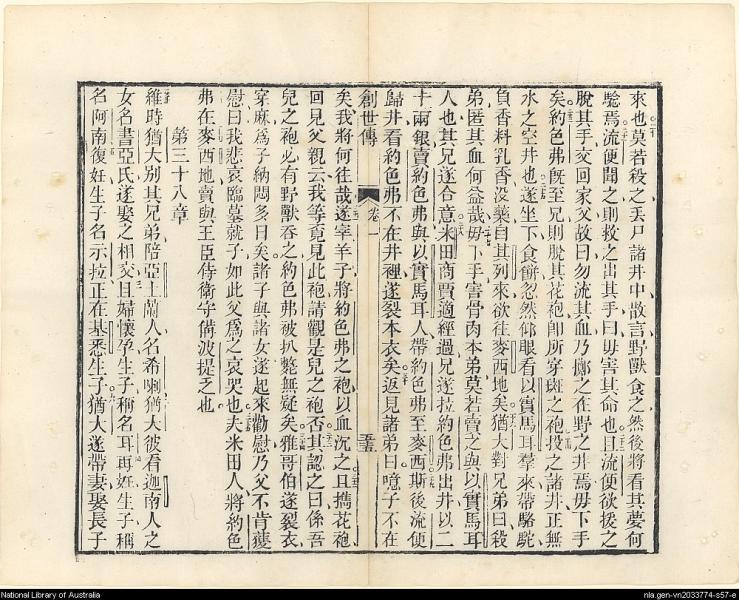 來也莫若殺之丟尸諸井中散言野獸食之然後將看其夢何
騐焉流便聞之則救之出其手曰毋害其命也且流便欲援之
脫其手交回家父故曰勿流其血乃擲之在野之井焉毋下手
矣約色弗既至兄則脫其花袍卽所穿斑之袍投之諸井正無
水之空井也遂坐下食餅忽然仰眼看以實馬耳羣來帶駱駝
負香料乳香沒藥自其列來欲往麥西地矣猶大對兄弟曰殺
弟匿其血何益哉毋下手害骨肉本弟莫若賣之與以實馬耳
人也其兄遂合意米田商賈適經過兄遂拉約色弗出井以二
十兩銀賣約色弗與以實馬耳人帶約色弗至麥西斯後流便
歸井看約色弗不在井裡遂裂本衣矣返見諸弟曰噫子不在
創世傳 卷一 三十五
矣我將何往哉遂宰羊子將約色弗之袍以血沉之且攜花袍
回見父親云我等竟見此袍請觀是兒之袍否其認之曰係吾
兒之袍必有野獸吞之約色弗被扒斃無疑矣雅哥伯遂裂衣
穿麻爲子納悶多日矣諸子與諸女遂起來勸慰乃父不肯獲
慰曰我悲哀臨墓就子如此父爲之哀哭也夫米田人將約色
弗在麥西地賣與王臣侍衛守備波提乏也
第三十八章
維時猶大別其兄弟陪亞士蘭人名希喇猶大彼看迦南人之
女名書亞氏遂娶之相交且婦懷孕生子稱名耳再妊生子稱
名阿南復妊生子名示拉正在基悉生子猶大遂帶妻娶長子